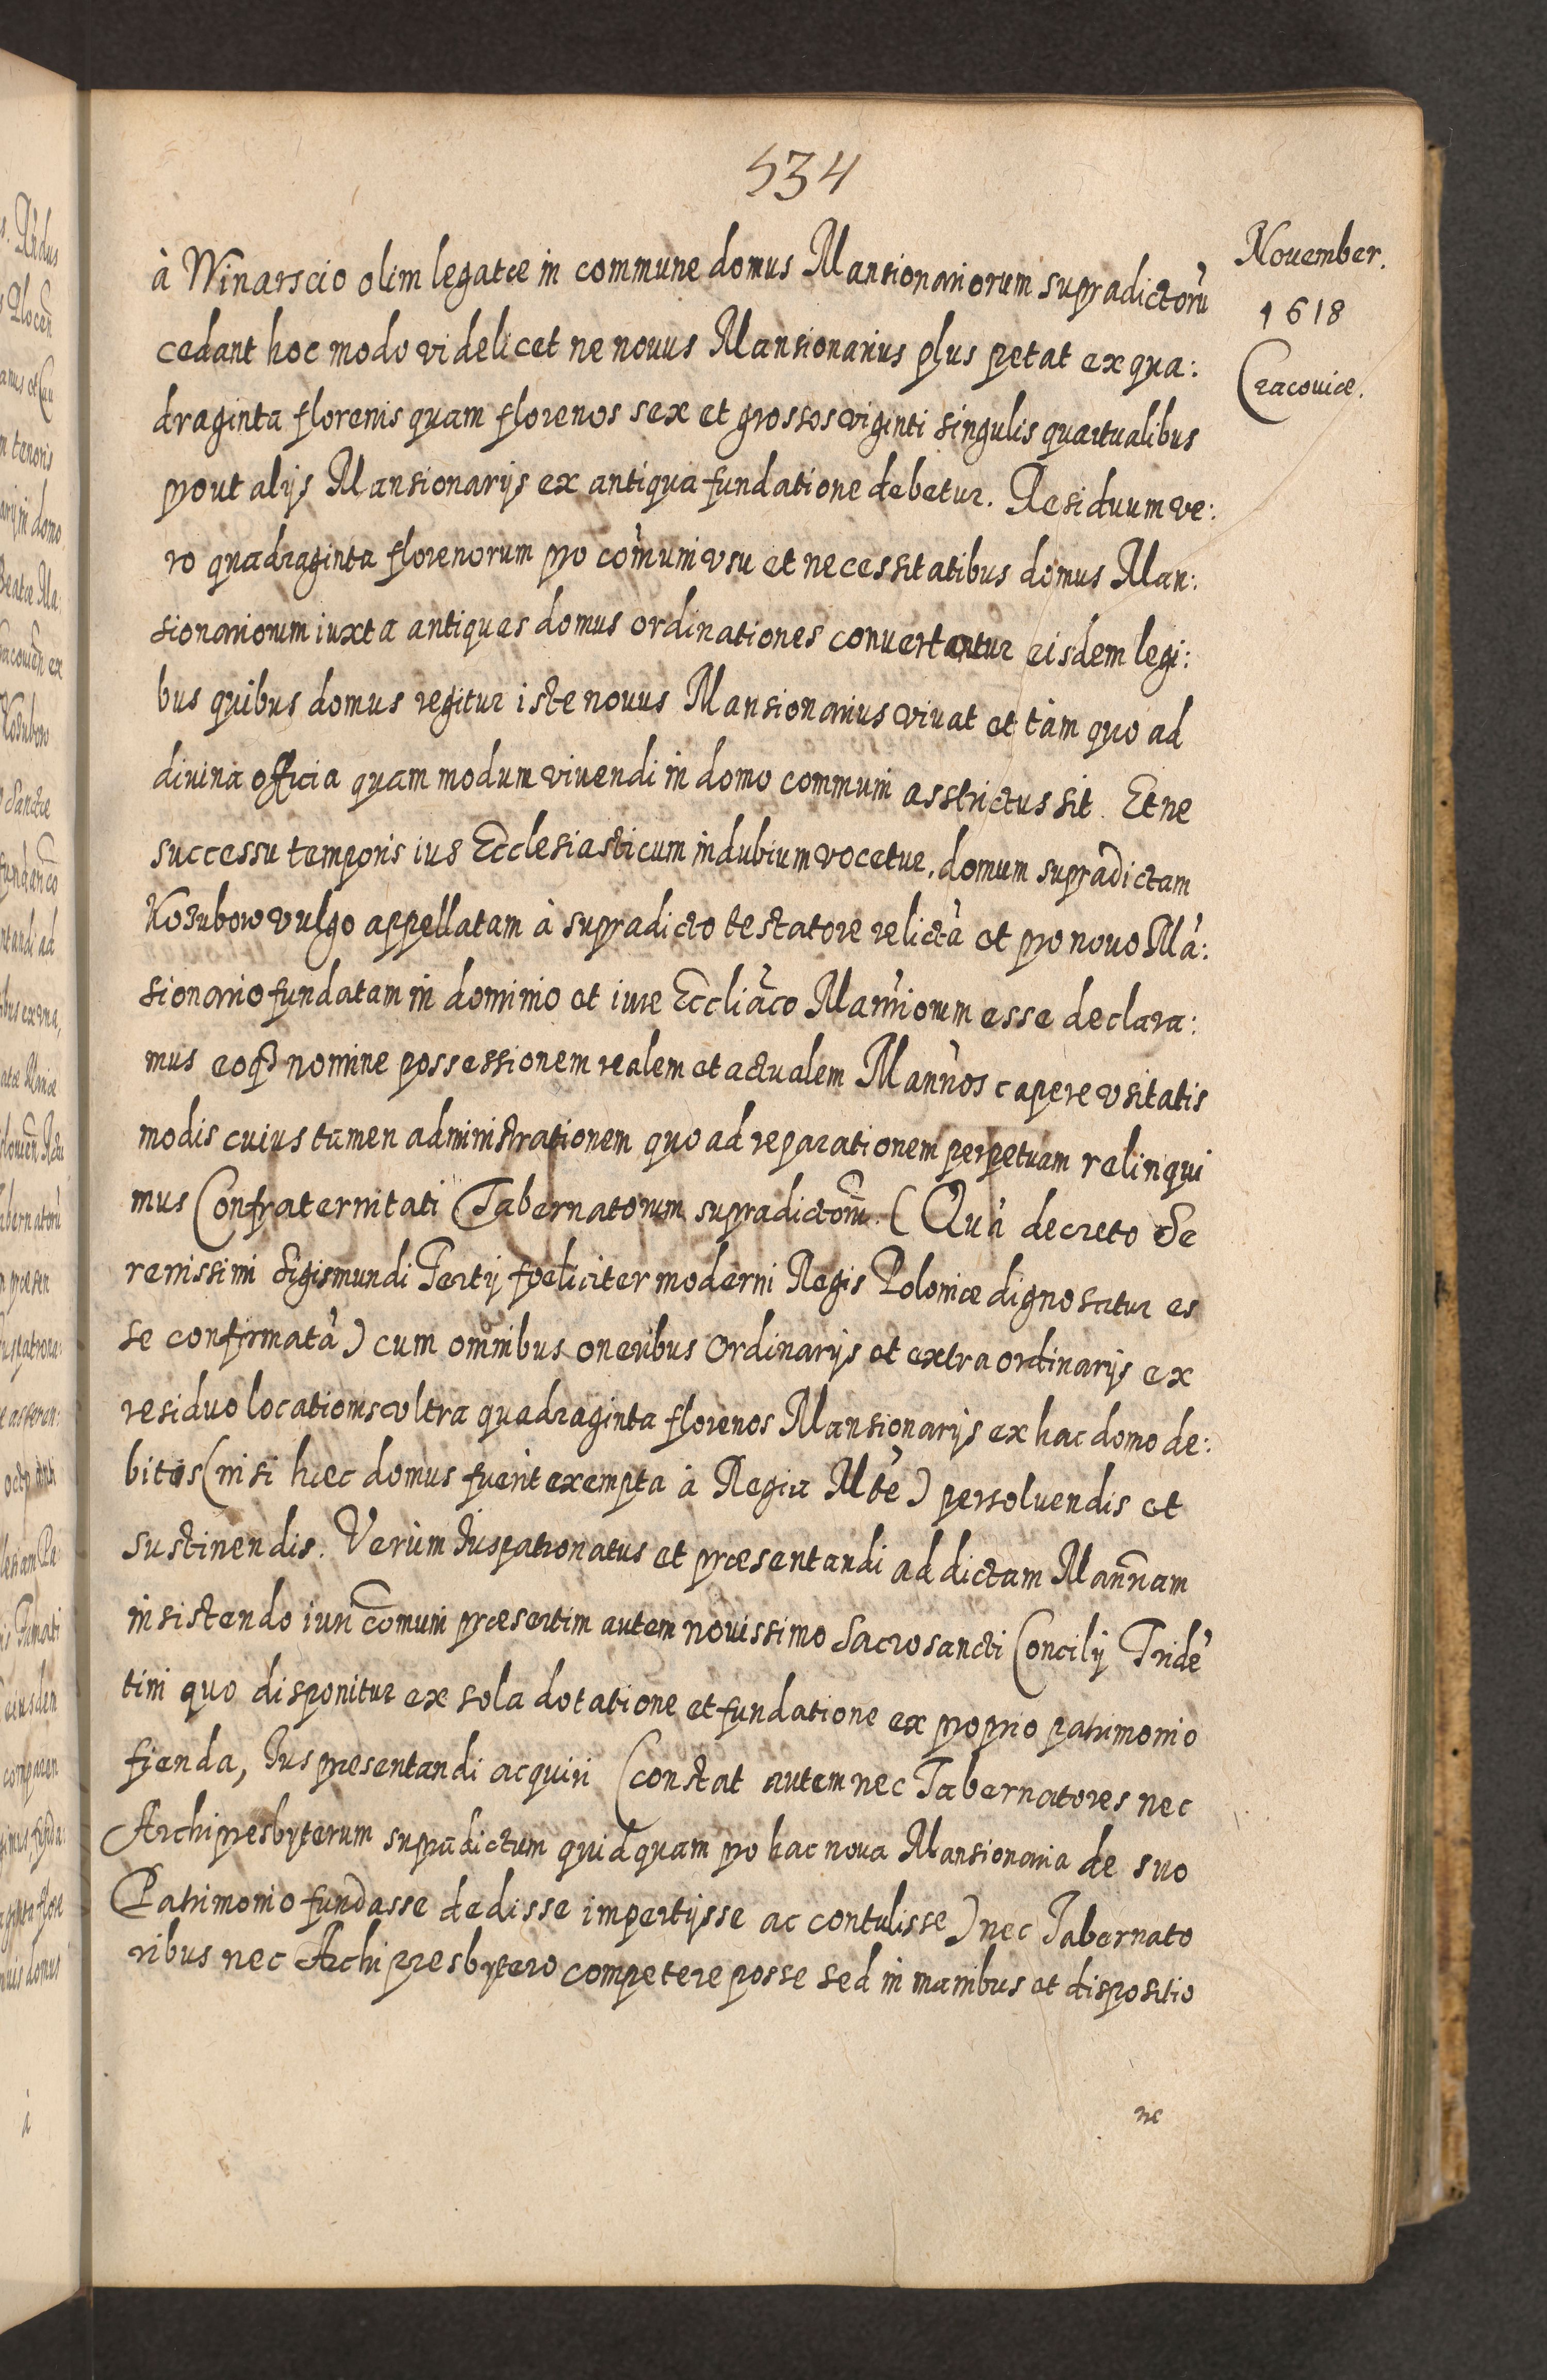 534
November.
1618
Cracouiæ.
à Winarscio olim legatæ in commune domus Mansionariorum supradictorũ
cedant hoc modo videlicet ne nouus Mansionarius plus petat ex qua:
draginta florenis quam florenos sex et grossos viginti singulis quartualibus
prout alijs Mansionarijs ex antiqua fundatione debetur. Residuum ve:
ro quadraginta florenorum pro com̃uni vsu et necessitatibus domus Man:
sionariorum iuxta antiquas domus ordinationes conuertantur eisdem legi:
bus quibus domus regitur iste nouus Mansionarius viuat et tàm quo ad
diuina officia quam modum viuendi in domo communi asstrictus sit. Et ne
successu temporis ius Ecclesiasticum in dubium vocetur, domum supradictam
Kozubow vulgo appellatam à supradicto testatore relictã et pro nouo Mã:
sionario fundatam in dominio et iure Eccliãco Mannriorum esse declara:
mus eoq3 nomine possessionem realem et actualem Mannr̃os capere vsitatis
modis cuius tamen administrationem quo ad reparationem perpetuam relinqui
mus Confraternitati Tabernatorum supradictorũ. (Quã decreto Se
renissimi Sigismundi Tertij foeliciter moderni Regis Poloniæ dignoscitur es
se confirmatã) cum omnibus oneribus ordinarijs et extraordinarijs ex
residuo locationis vltra quadraginta florenos Mansionarijs ex hac domo de:
bitos (nisi hæc domus fuerit exempta à Regia Mtẽ) persoluendis et
sustinendis. Verùm Iuspatronatus et præsentandi ad dictam Mann̅am
insistendo iuri com̃uni præsertim autem nouissimo Sacrosancti Concilij Tridẽ
tini quo disponitur ex sola dotatione et fundatione ex proprio patrimonio
fienda, Ius præsentandi acquiri (constat autem nec Tabernatores nec
Archipresbyterum supradictum quidquam pro hac noua Mansionaria de suo
Patrimonio fundasse dedisse impertijsse ac contulisse) nec Tabernato
ribus nec Archipresbytero competere posse sed in manibus et dispositio
ne